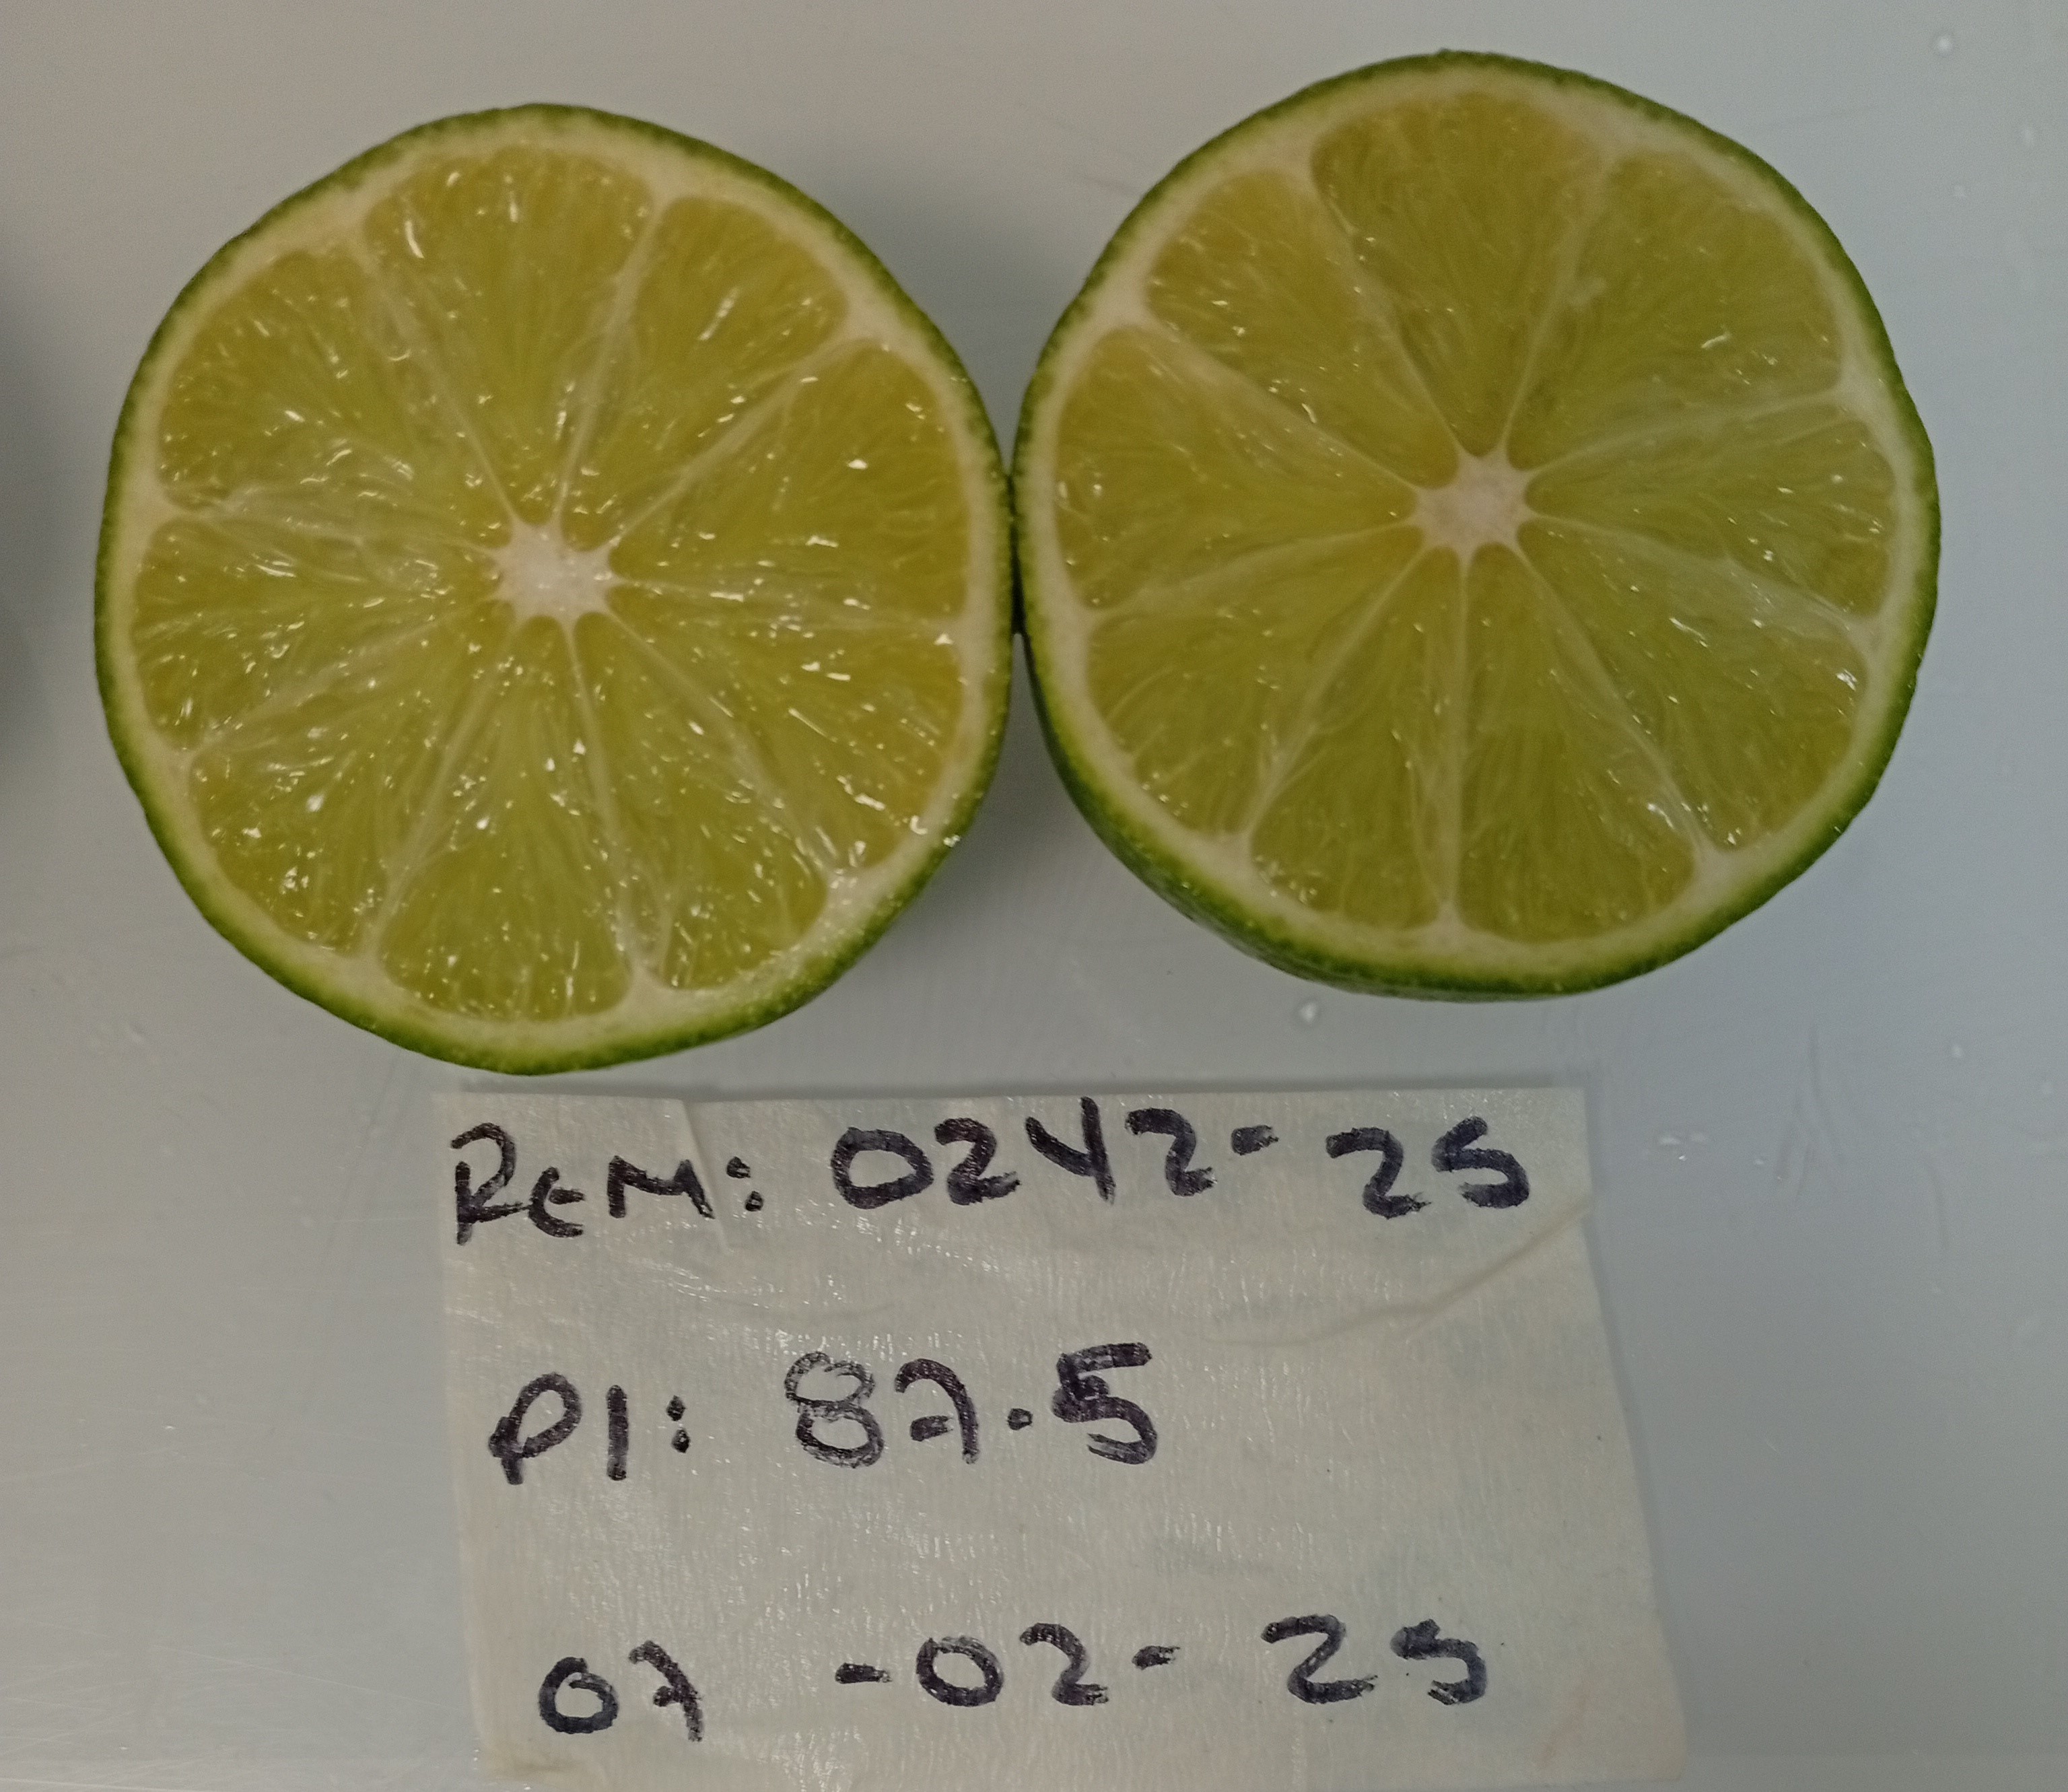 REM: 0242-25
PI: 87.5
07 -02- 25